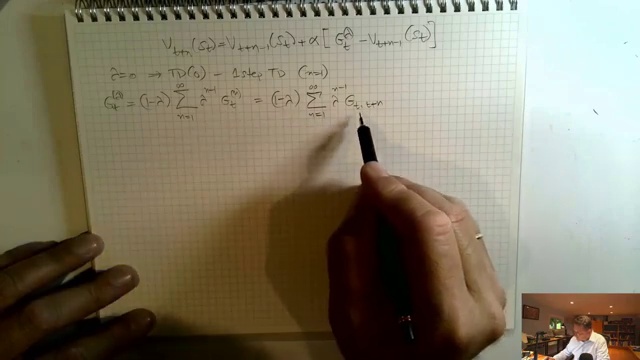 V_{t+n}(S_t) = V_{t+n-1}(S_t) + α[G_t^λ - V_{t+n-1}(S_t)]
λ=0 ⇒ TD(0) - 1 step TD (n=1)
G_t^{(λ)} = (1-λ) Σ_{n=1}^∞ λ^{n-1} G_t^{(n)} = (1-λ) Σ_{n=1}^∞ λ^{n-1} G_{t:t+n}